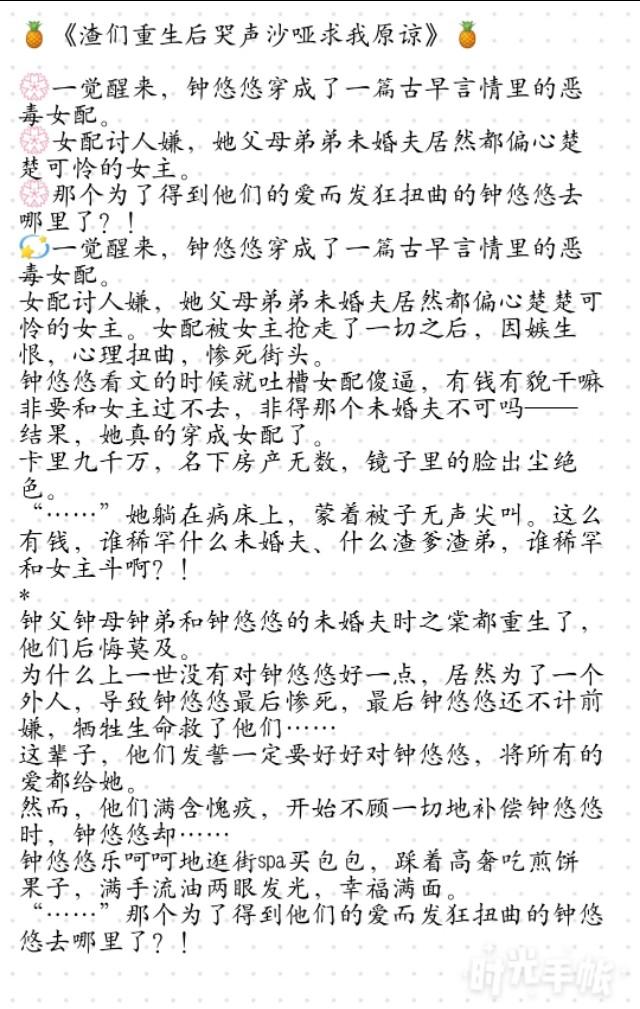 🍍《渣们重生后哭声沙哑求我原谅》🍍
💮一觉醒来，钟悠悠穿成了一篇古早言情里的恶
毒女配。
💮女配讨人嫌，她父母弟弟未婚夫居然都偏心楚
楚可怜的女主。
💮那个为了得到他们的爱而发狂扭曲的钟悠悠去
哪里了？！
💫一觉醒来，钟悠悠穿成了一篇古早言情里的恶
毒女配。
女配讨人嫌，她父母弟弟未婚夫居然都偏心楚楚可
怜的女主。女配被女主抢走了一切之后，因嫉生
恨，心理扭曲，惨死街头。
钟悠悠看文的时候就吐槽女配傻逼，有钱有貌干嘛
非要和女主过不去，非得那个未婚夫不可吗——
结果，她真的穿成女配了。
卡里九千万，名下房产无数，镜子里的脸出尘绝
色。
“……”她躺在病床上，蒙着被子无声尖叫。这么
有钱，谁稀罕什么未婚夫、什么渣爹渣弟，谁稀罕
和女主斗啊？！
*
钟父钟母钟弟和钟悠悠的未婚夫时之棠都重生了，
他们后悔莫及。
为什么上一世没有对钟悠悠好一点，居然为了一个
外人，导致钟悠悠最后惨死，最后钟悠悠还不计前
嫌，牺牲生命救了他们……
这辈子，他们发誓一定要好好对钟悠悠，将所有的
爱都给她。
然而，他们满含愧疚，开始不顾一切地补偿钟悠悠
时，钟悠悠却……
钟悠悠乐呵呵地逛街spa买包包，踩着高奢吃煎饼
果子，满手流油两眼发光，幸福满面。
“……”那个为了得到他们的爱而发狂扭曲的钟悠
悠去哪里了？！
时光手帐